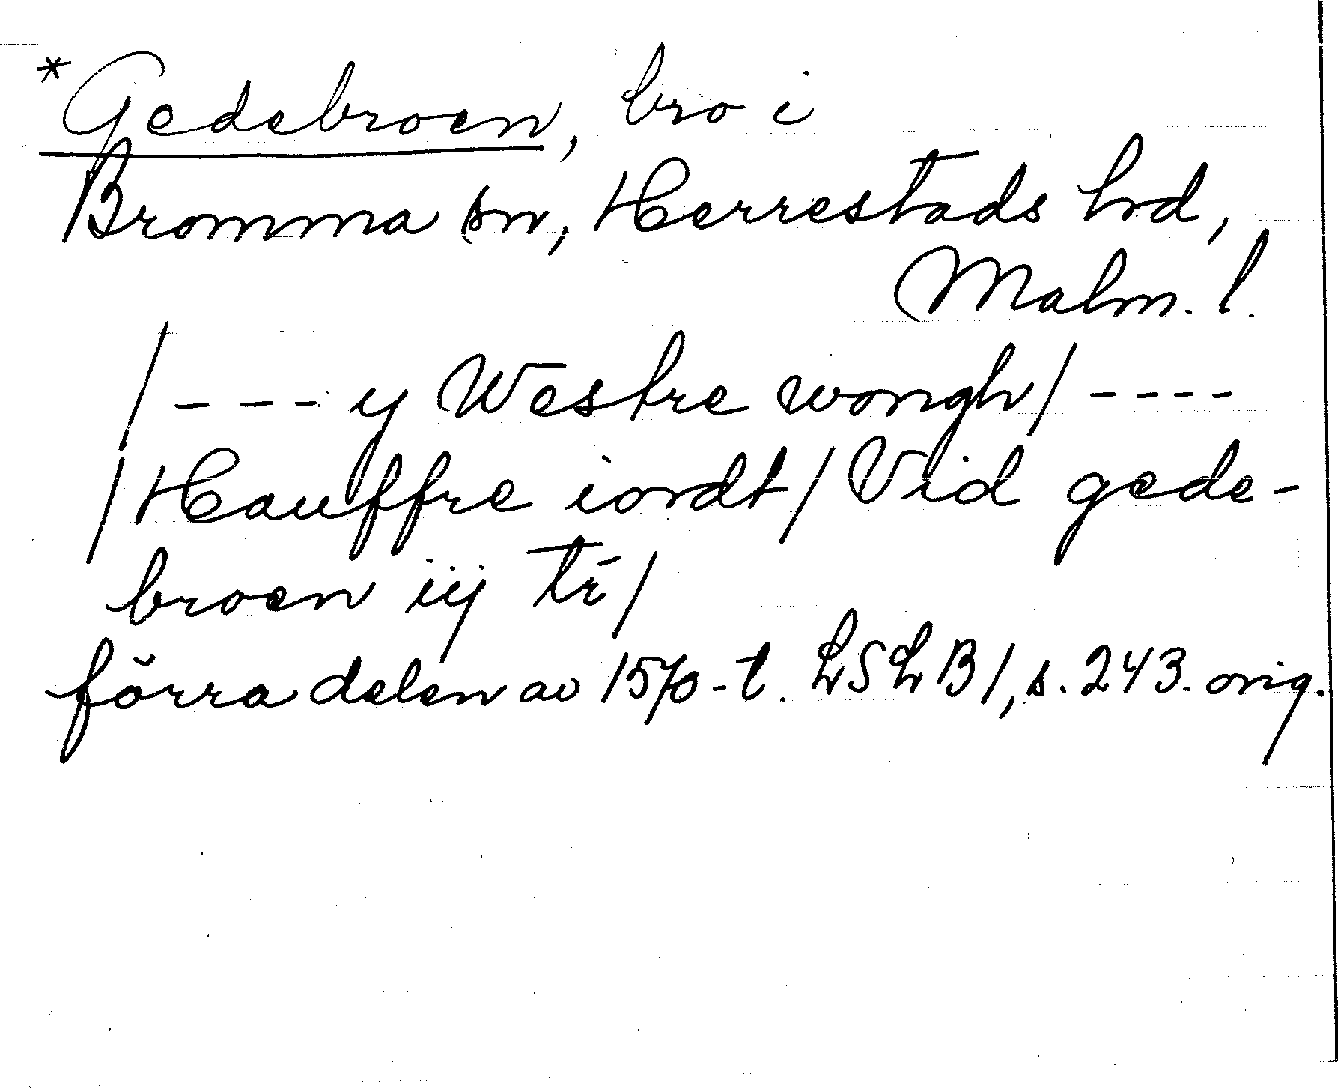 *Gedebroen, bro i
Bromma sn, Herrestads hrd,
Malm. l.
/ - - - y Westre wongh/ - - - -
/Hauffre iordt/ Vid gede-
broen iij tr̄/
förra delen av 1570-t. LSLB1, s. 243. orig.